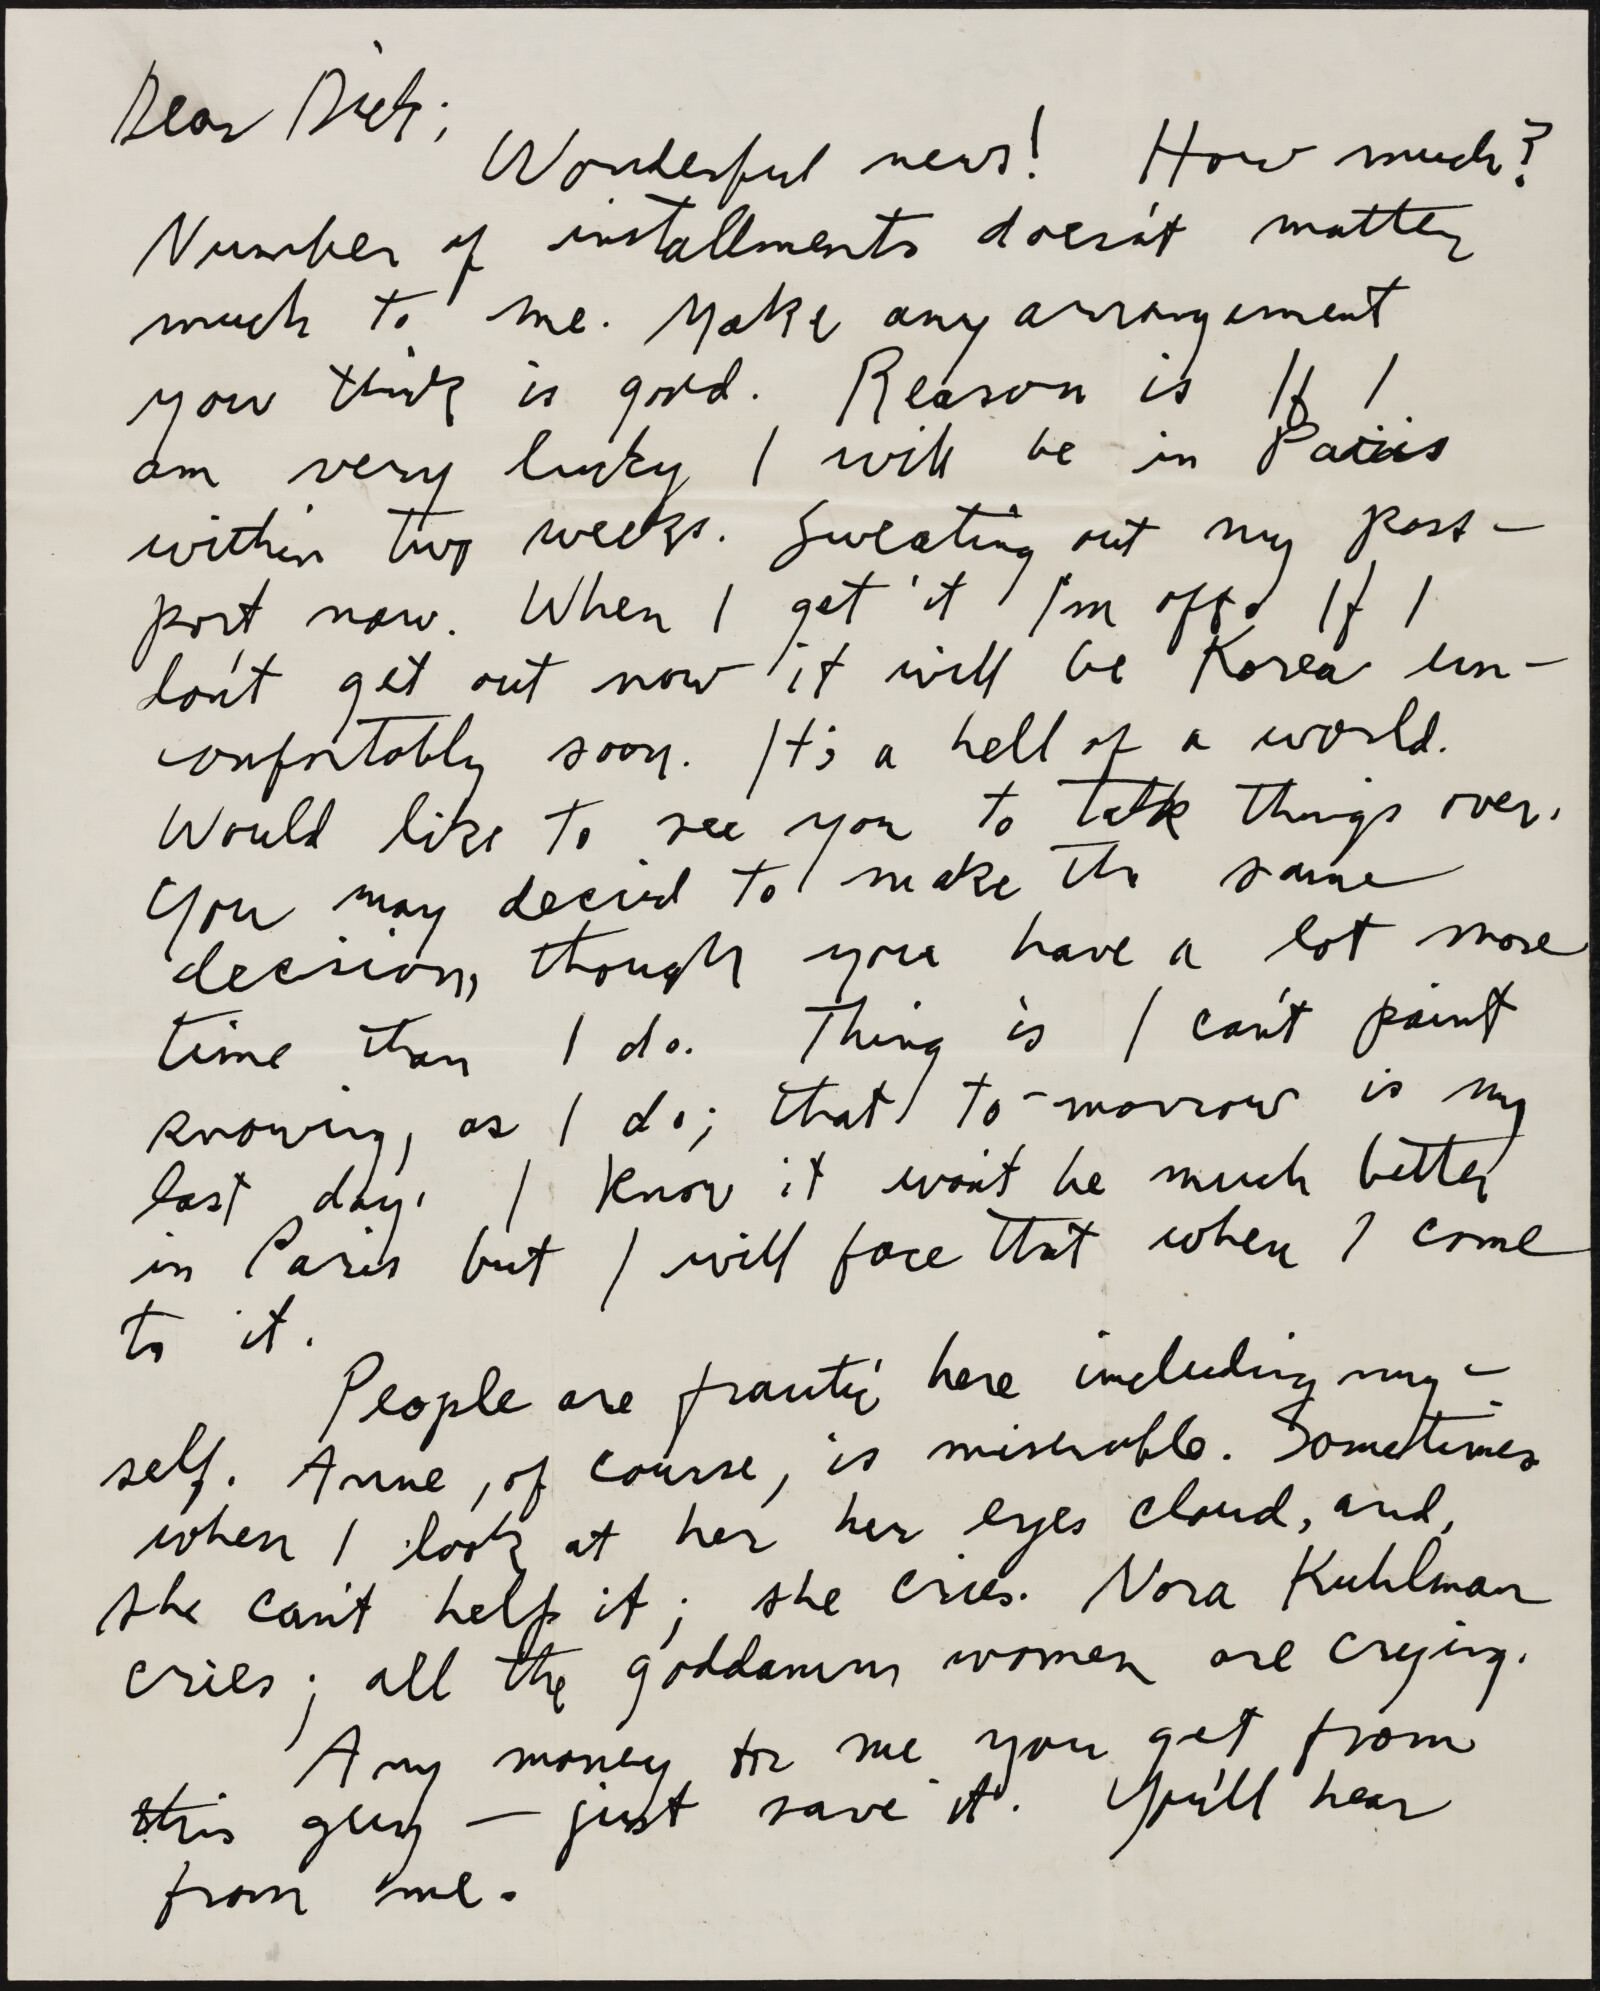 Dear Dick;
Wonderful news! How much?
Number of installments doesn't matter
much to me. Make any arrangement
you think is good. Reason is If I
am very lucky I will be in Paris
within two weeks. Sweating out my pass-
port now. When I get it I'm off. If I
don't get out now it will be Korea un-
comfortably soon. It's a hell of a world.
Would like to see you to talk things over.
You may decied to make the same
decision, though you have a lot more
time than I do. Thing is I can't paint
knowing, as I do; that to-morrow is my
last day. I know it won't be much better
in Paris but I will face that when I come
to it.
People are frantic here including my-
self. Anne, of course, is miserable. Sometimes
when I look at her her eyes cloud, and,
she can't help it; she cries. Nora Kuhlman
cries; all the goddamm women are crying.
Any money for me you get from
this guy — just save it. You'll hear
from me.